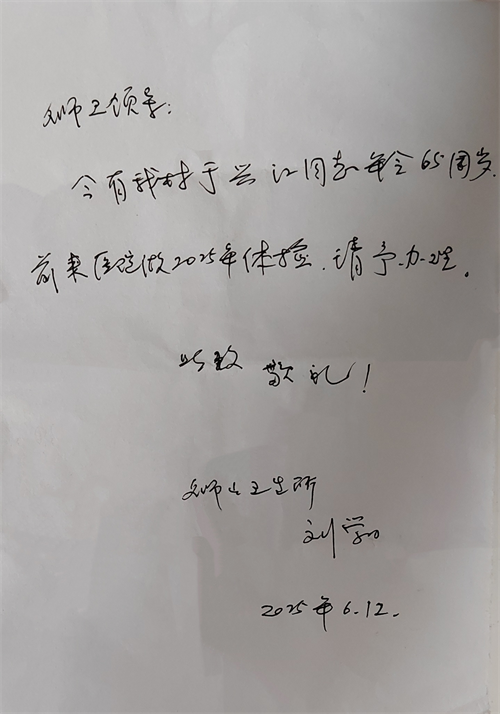 师卫领导：
今有我村于兴江同志年令65周岁，
前来医院做2025年体检，请予办理。
此致 敬礼！
师山卫生所
刘学
2025年6.12.